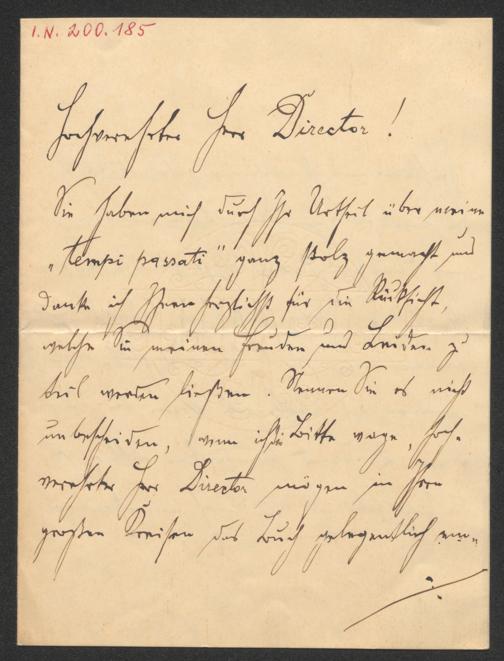 I.N. 200.185
Hochverehrter Herr Director!
Sie haben mich durch Ihr Urtheil über meine
„tempi passati“ ganz stolz gemacht und
danke ich Ihnen herzlichst für die Rücksicht,
welche Sie meinen Freuden und Leiden zu
teil werden ließen. Nennen Sie es nicht
unbescheiden, wenn ich die Bitte wage, Hoch-
verehrter Herr Director mögen in Ihren
großen Kreisen das Buch gelegentlich em-